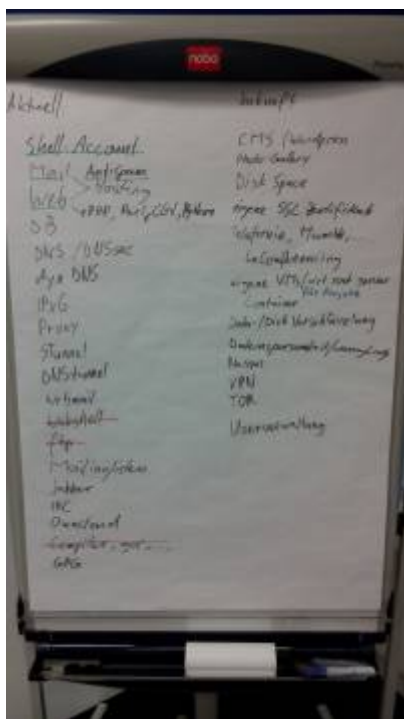 nobo
Aktuell
Shell Account
Mail Antispam
Web Hosting
+PHP, Perl, CGI, Python
DB
DNS / DNSsec
Dyn DNS
IPv6
Proxy
Stunnel
DNStunnel
Webmail
Webshell
ftp
Mailinglisten
Jabber
IRC
Owncloud
Compiler, gcc, ...
GPG
Zukunft
CMS / Wordpress
Photo Gallery
Disk Space
eigene SSL Zertifikate
Telefonie, Mumble, ...
eigene VMs / virt root server
für Projekte
Container
Daten-/Disk Verschlüsselung
Nessus
VPN
TOR
Userverwaltung